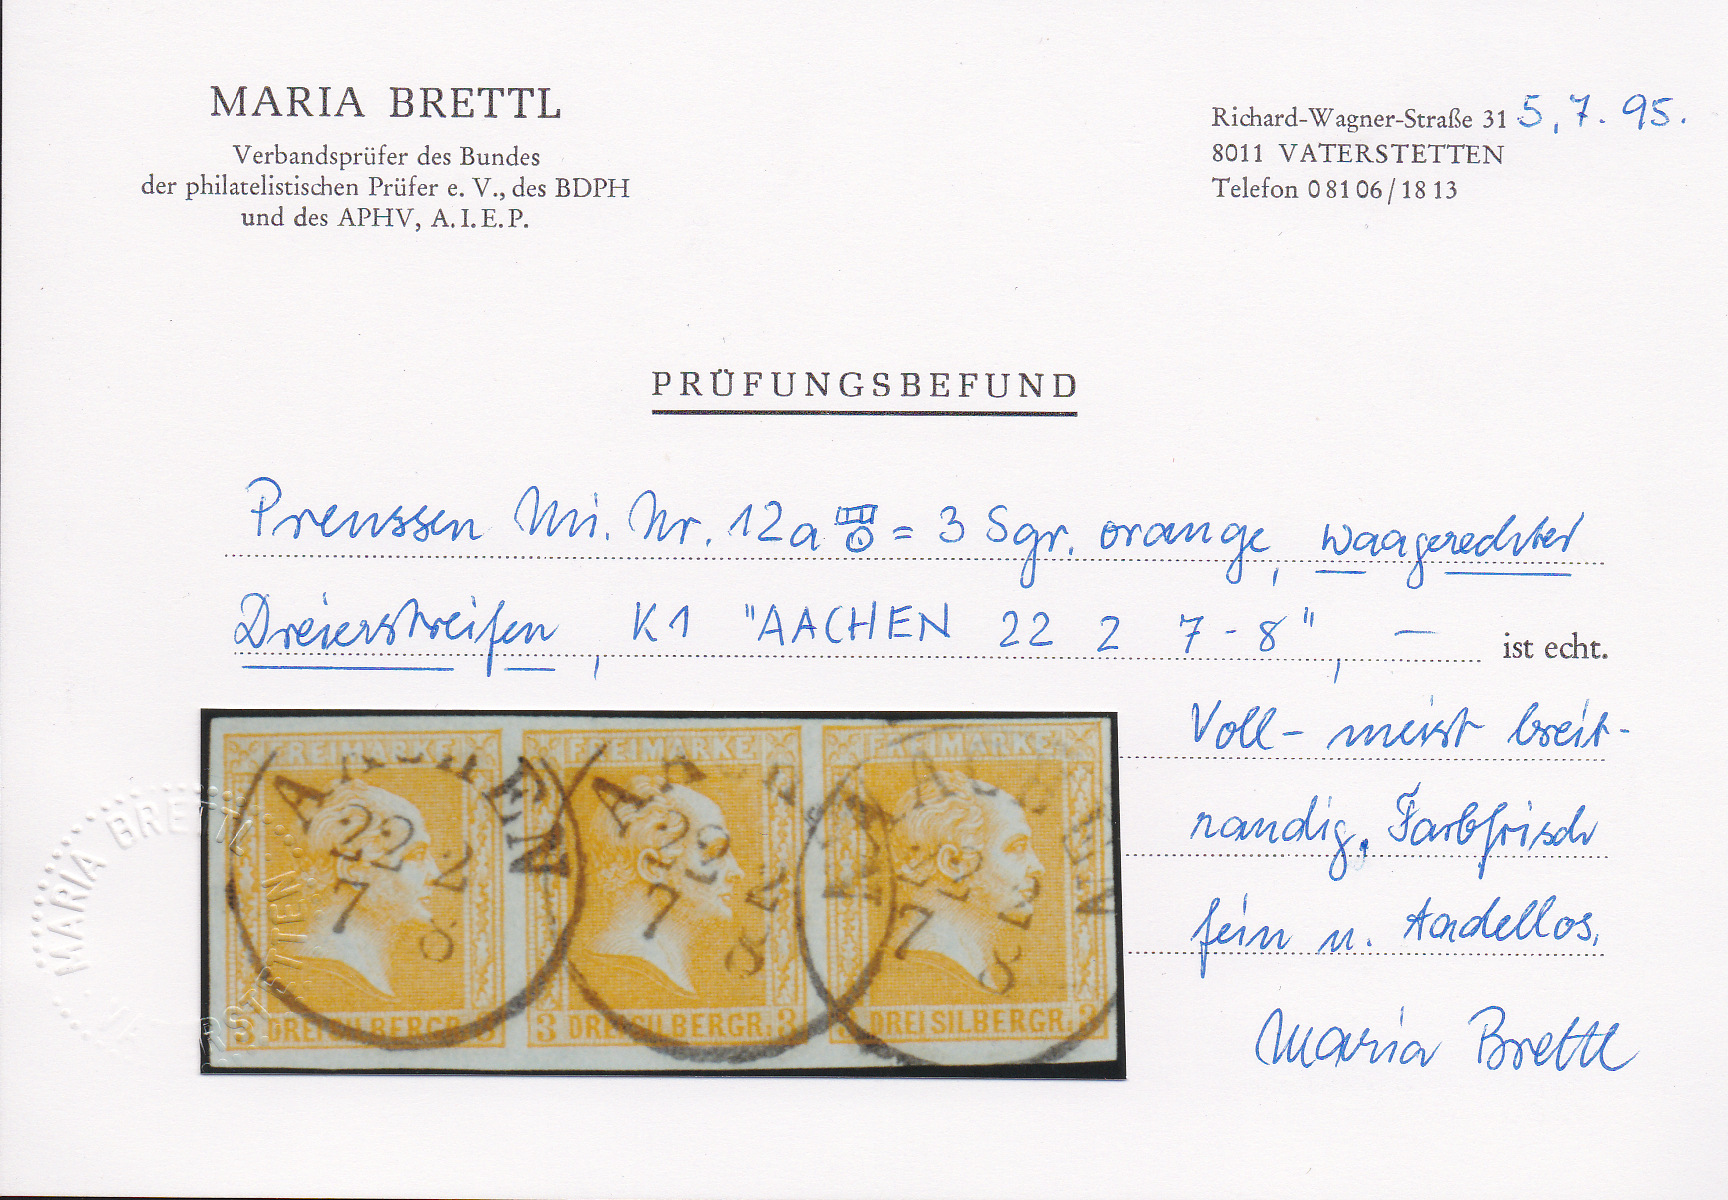 MARIA BRETTL
Verbandsprüfer des Bundes
der philatelistischen Prüfer e. V., des BDPH
und des APHV, A.I.E.P.
Richard-Wagner-Straße 31 5.7.95.
8011 VATERSTETTEN
Telefon 08106/1813
PRÜFUNGSBEFUND
Preussen Mi. Nr. 12a = 3 Sgr. orange, waagerechter
Dreierstreifen, K1 "AACHEN 22 2 7-8", — ist echt.
Voll- meist breit-
randig. Farbfrisch
fein u. tadellos.
Maria Brettl
MARIA BRETTL
VATERSTETTEN
FREIMARKE FREIMARKE FREIMARKE
AACHEN AACHEN AACHEN
22 2 22 2 22 2
7 8 7 8 7 8
3 DREI SILBERGR. 3 3 DREI SILBERGR. 3 DREI SILBERGR. 3